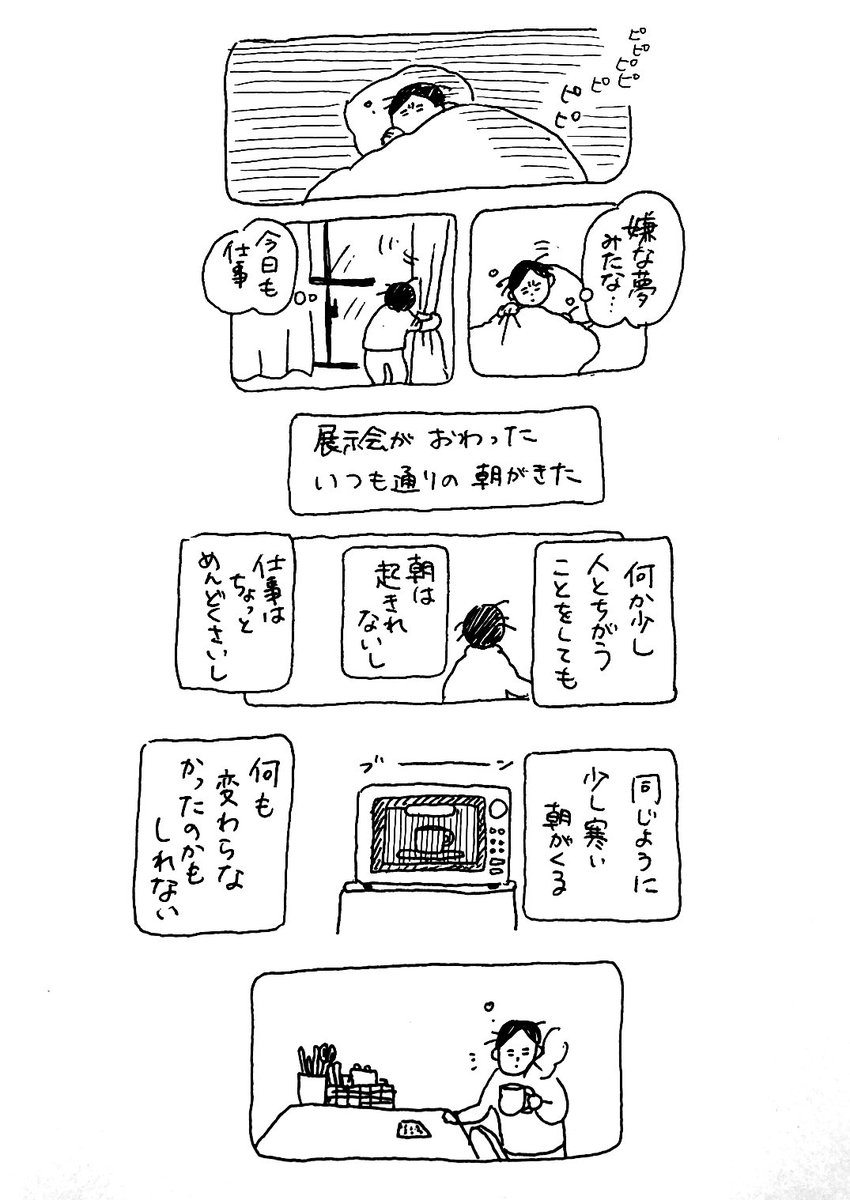 ピピピピピ
ピピ
嫌な夢
みたな…
今日も
仕事
展示会が おわった
いつも通りの 朝がきた
何か少し
人とちがう
ことをしても
朝は
起きれ
ないし
仕事は
ちょっと
めんどくさいし
同じように
少し寒い
朝がくる
ブーン
何も
変わらな
かったのかも
しれない